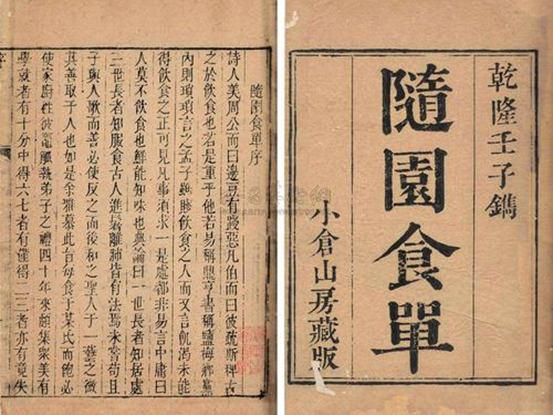 乾隆壬子鐫
隨園食單
小倉山房藏版
隨園食單序
詩人美周公而曰籩豆有踐惡凡伯而曰彼疏斯粺古
之於飲食也若是重乎他若易稱鼎亨書稱鹽梅鄉黨
內則瑣瑣言之孟子雖賤飲食之人而又言飢渴未能
得飲食之正可見凡事須求一是處都非易言中庸曰
人莫不飲食也鮮能知味也典論曰一世長者知居處
三世長者知服食古人進鬐離肺皆有法焉未嘗苟且
子與人歌而善必使反之而後和之聖人于一藝之微
其善取于人也如是余雅慕此旨每食于某氏而飽必
使家廚往彼竈觚執弟子之禮四十年來頗集眾美有
學就者有十分中得六七者有僅得二三者亦有竟失